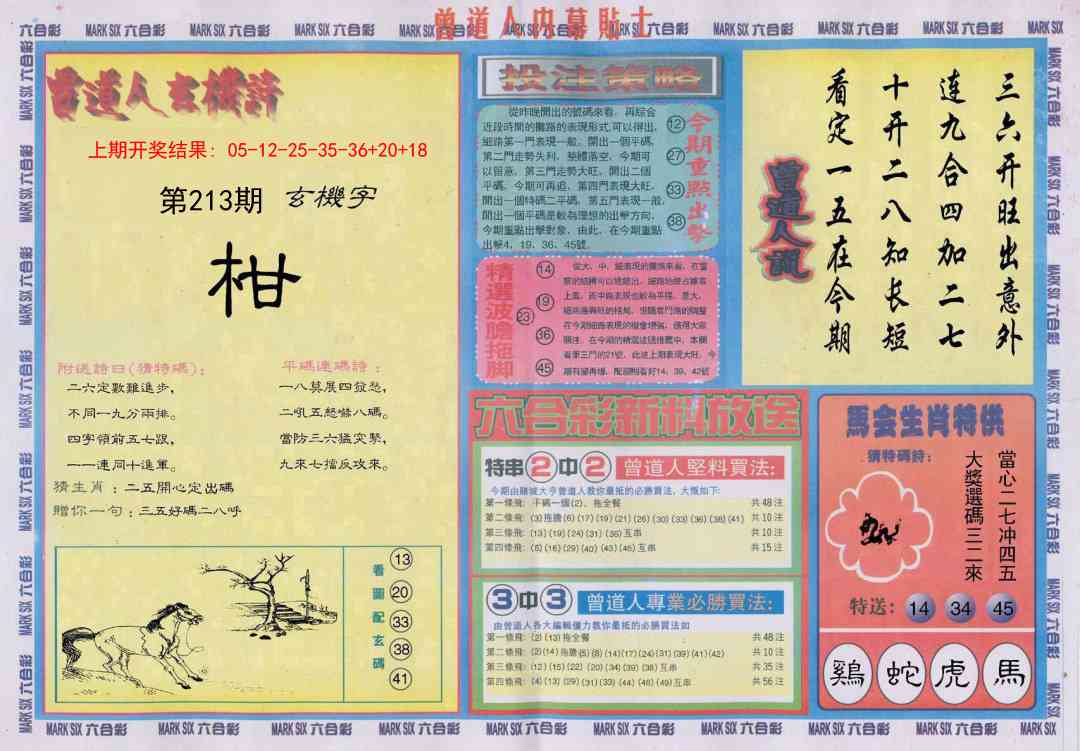 曾道人内幕貼士
MARK SIX 六合彩
曾道人玄機詩
上期开奖结果: 05-12-25-35-36+20+18
第213期 玄機字
柑
附送詩曰(猜特碼):
二六定數難進步,
不同一九分兩排。
四字領前五七跟,
一一連同十進軍。
平碼連碼詩:
一八莫展四發愁,
二吼五怒雞八碼。
當防三六猛突擊,
九來七擋反攻來。
猜生肖:二五開心定出碼
贈你一句:三五好碼二八呼
看圖配玄碼
13
20
33
38
41
投注策略
從昨晚開出的號碼來看,再綜合
近段時間的攤路的表現形式,可以得出,
細路第一門表現一般,開出一個平碼,
第二門走勢失利,整體落空,今期可
以留意,第三門走勢大旺,開出二個
平碼,今期可再追,第四門表現大旺,
開出一個特碼二平碼,第五門表現一般,
開出一個平碼是較為理想的出擊方向,
今期重點出擊對象,由此,在今期重點
出擊4、19、36、45號。
12
27
33
38
今期重點出擊
精選波膽拖脚
14
19
23
36
45
在今期細路表現的機會增強,值得大家
看第三門的21號,此波上期表現大旺,今
期有望再爆,配腳則看好14、39、42號
曾道人說
三六开旺出意外
连九合四加二七
十开二八知长短
看定一五在今期
六合彩新料放送
特串2中2 曾道人堅料買法:
今期由賭城大亨曾道人教你最抵的必勝買法,大概如下:
第一條飛: 平碼一個(2)、拖全餐 共48注
第二條飛: (3)拖膽(6)(17)(19)(21)(26)(30)(33)(36)(38)(41) 共10注
第三條飛: (13)(19)(24)(31)(35)互串 共10注
第四條飛: (5)(16)(29)(40)(43)(45)互串 共15注
3中3 曾道人專業必勝買法:
由曾道人各大編輯優力教你最抵的必勝買法如
第一條飛: (2)(13)拖全餐 共48注
第二條飛: (2)(14)拖膽(5)(8)(14)(17)(24)(31)(39)(41)(42) 共10注
第三條飛: (12)(15)(22)(20)(34)(39)(38)互串 共35注
第四條飛: (4)(13)(29)(31)(33)(44)(48)(49)互串 共56注
馬会生肖特供
猜特碼詩:
當心二七冲四五
大獎選碼三二來
特送: 14 34 45
鷄 蛇 虎 馬